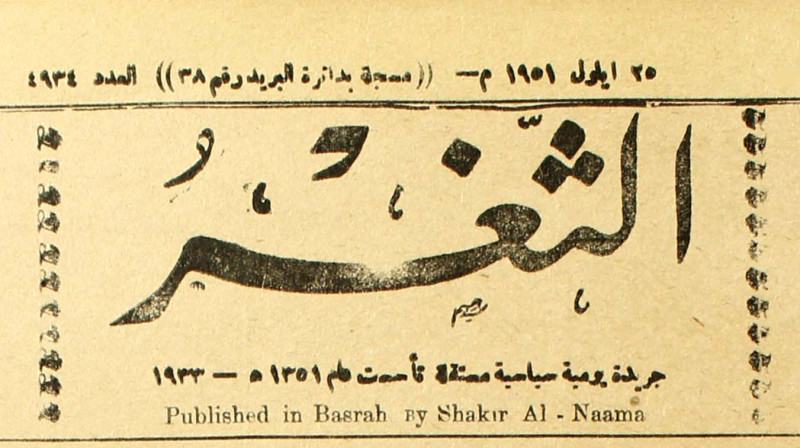 ٢٥ ايلول ١٩٥١ م — ((مسجلة بدائرة البريد رقم ٣٨)) العدد ٤٩٣٤
الثَّغْرُ
جريدة يومية سياسية مستقلة تأسست عام ١٣٥١ ه — ١٩٣٣
Published in Basrah By Shakir Al - Naama